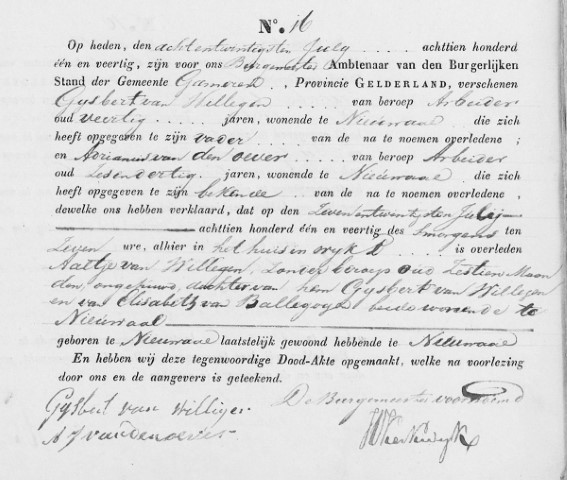 N.º 16
Op heden, den achtentwintigsten July achttien honderd
één en veertig, zijn voor ons Burgemeester Ambtenaar van den Burgerlijken
Stand der Gemeente Gameren, Provincie GELDERLAND, verschenen
Gysbert van Willegen van beroep Arbeider
oud veertig jaren, wonende te Nieuwaal die zich
heeft opgegeven te zijn vader van de na te noemen overledene;
en Adrianus van den oever van beroep Arbeider
oud Zesendertig jaren, wonende te Nieuwaal die zich
heeft opgegeven te zijn bekende van de na te noemen overledene,
dewelke ons hebben verklaard, dat op den Zevenentwintigsten Julij
achttien honderd één en veertig des Smorgens ten
Zeven ure, alhier in het huis in wyk is overleden
Aartje van Willegen, Zonder beroep oud Zestien Maan
den, ongehuwd, dochter van hem Gysbert van Willegen
en van Elisabeth van Ballegoyen beide wonende te
Nieuwaal
geboren te Nieuwaal laatstelijk gewoond hebbende te Nieuwaal
En hebben wij deze tegenwoordige Dood-Akte opgemaakt, welke na voorlezing
door ons en de aangevers is geteekend.
Gysbert van Willigen
De Burgemeester voornoemd
A J van den oever